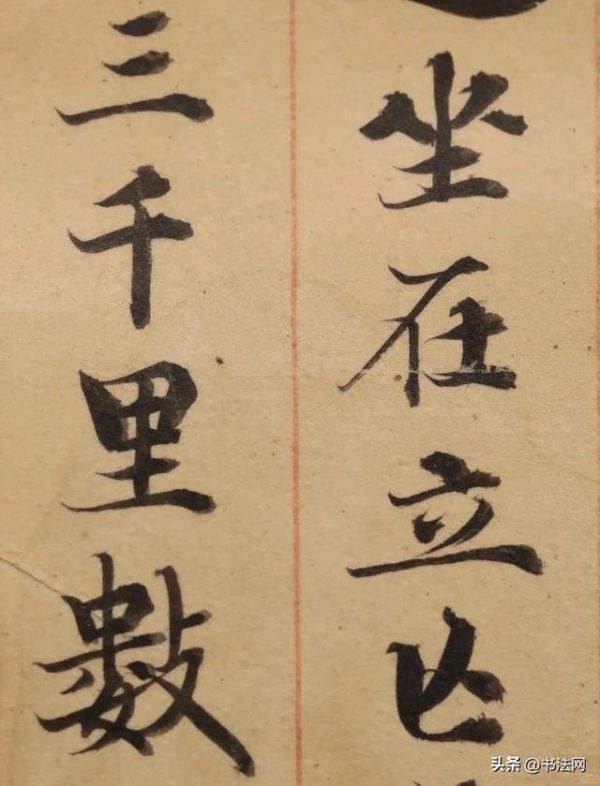 坐在立亡
三千里數
头条 @书法网